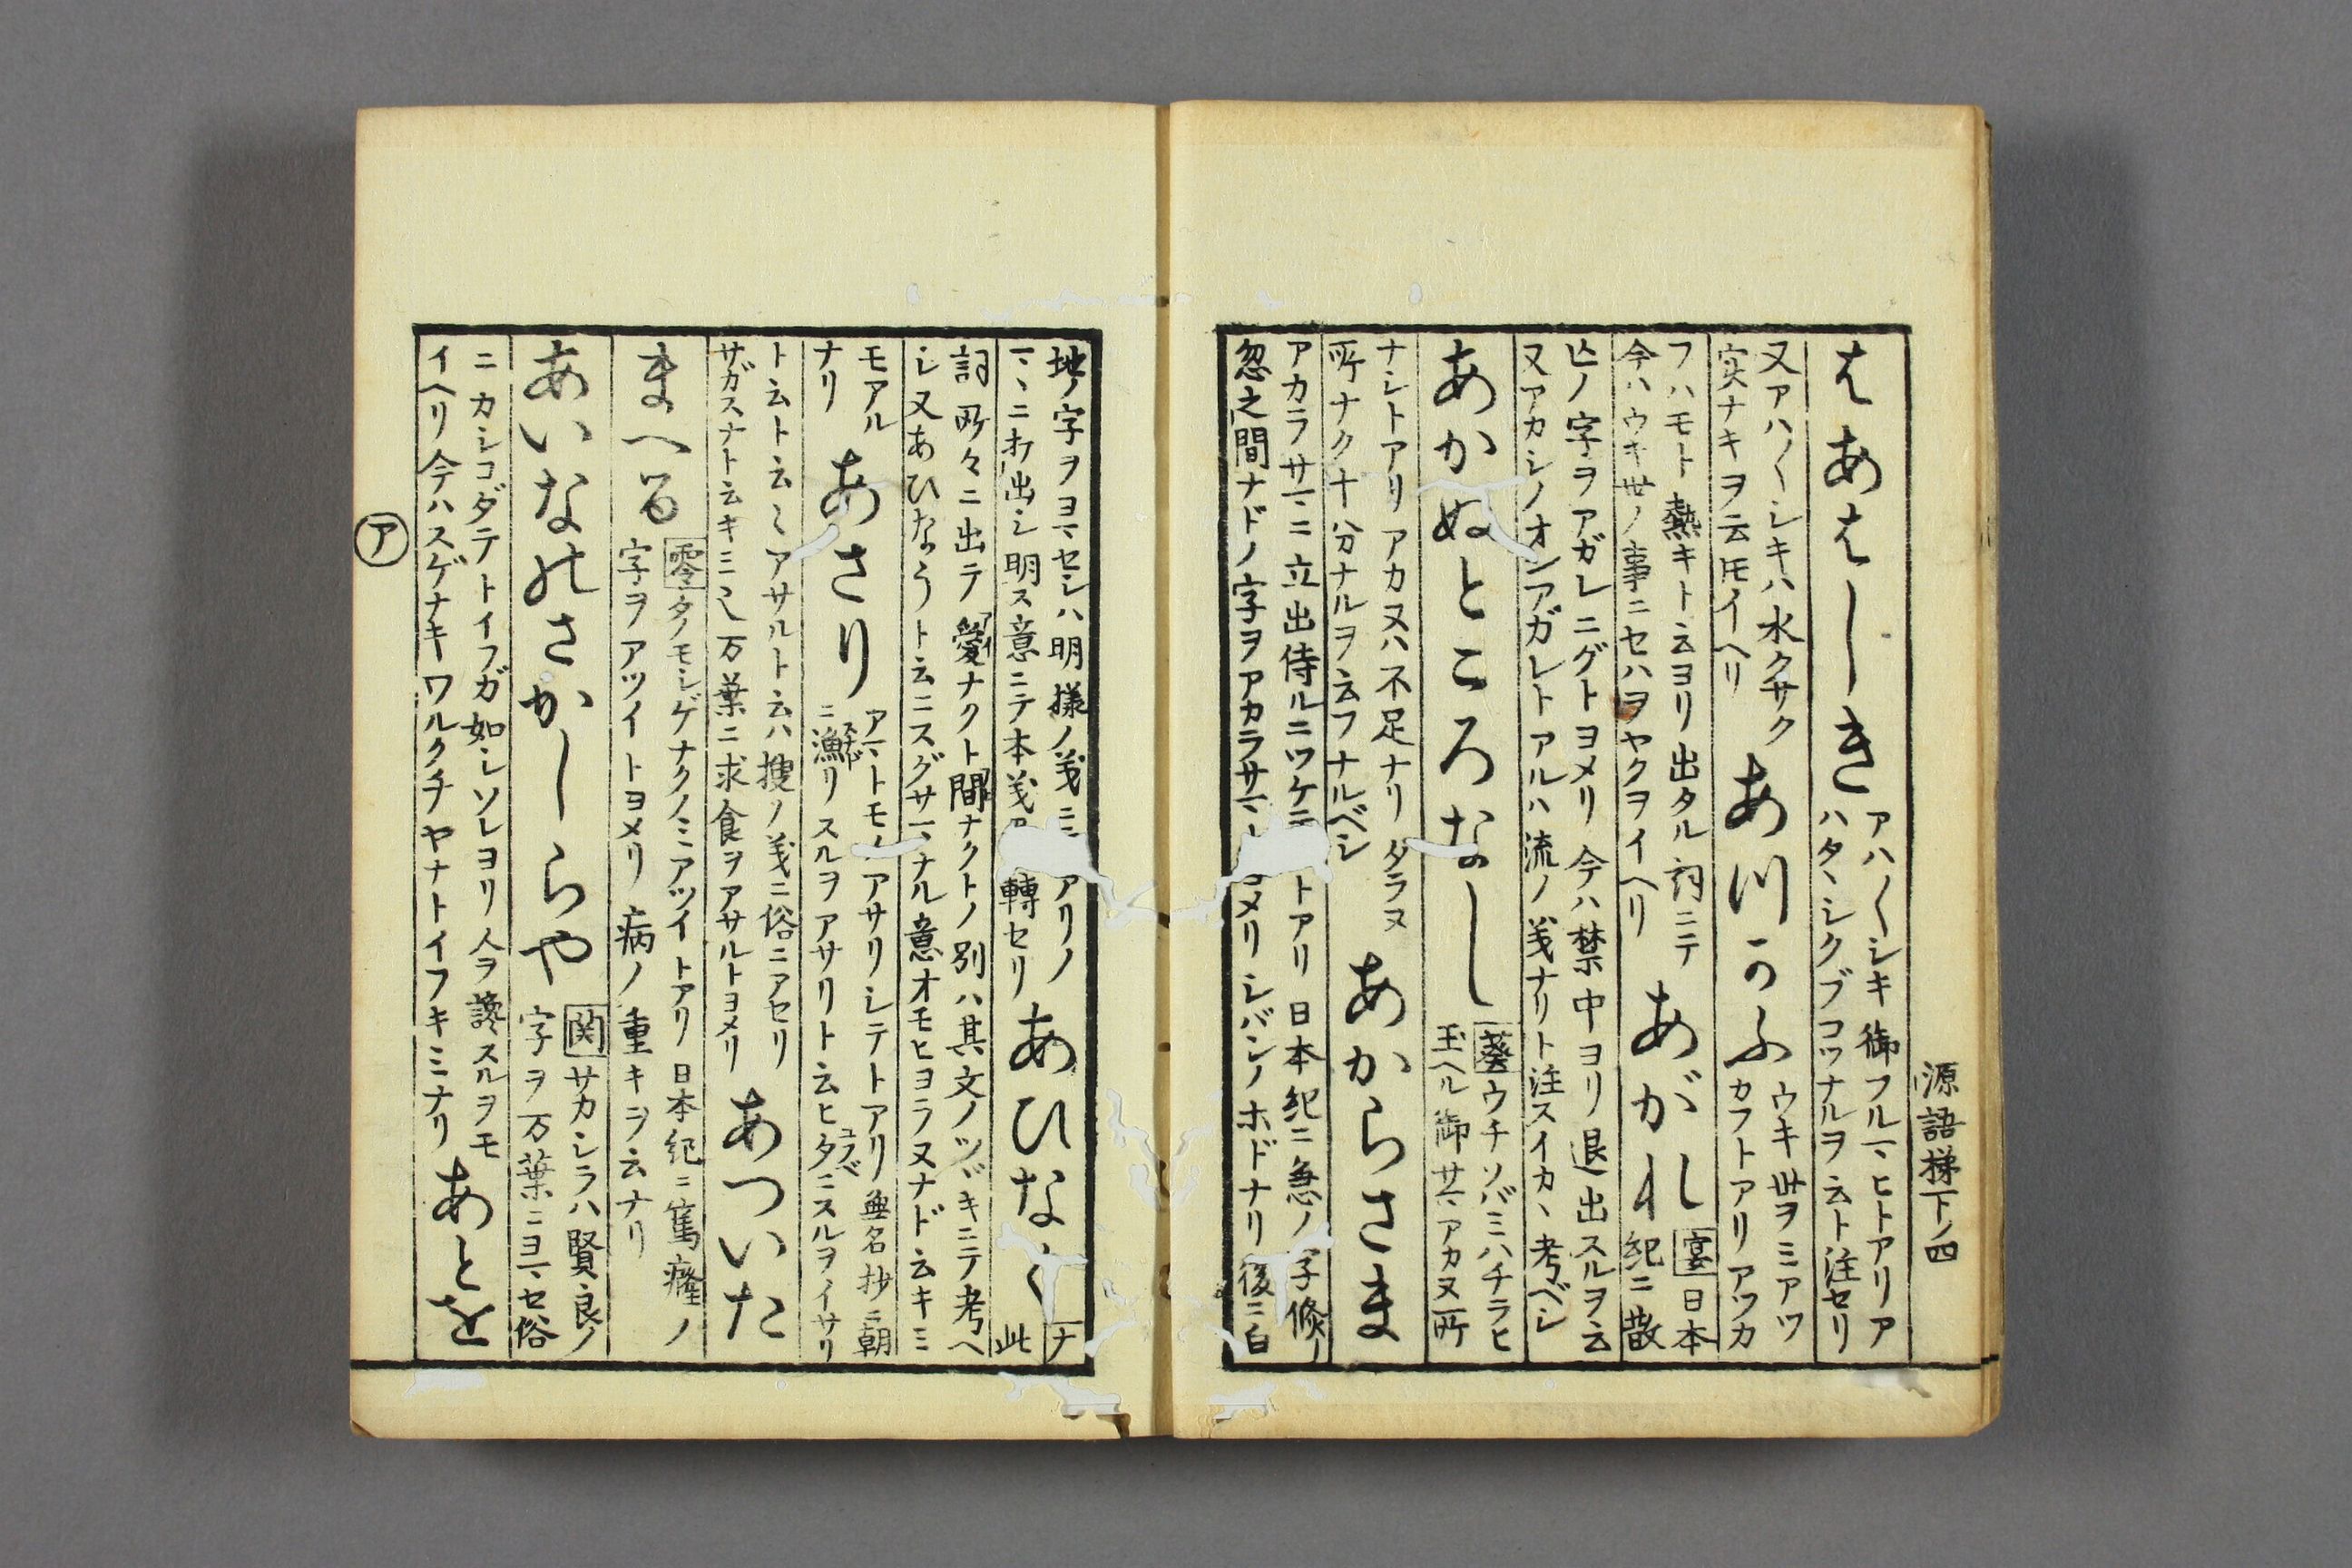 源語梯下ノ四
はあはしき
アハ〱シキ御フルマヒトアリア
ハタヽシクブコツナルヲ云ト注セリ
又アハ〱シキハ水クサク
実ナキヲ云トモイヘリ
あつかふ
ウキ世ヲミアツ
カフトアリアツカ
フハモト熱キト云ヨリ出タル詞ニテ
今ハウキ世ノ事ニセハヲヤクヲイヘリ
あがれし
宴日本
紀ニ散
亡ノ字ヲアガレニグトヨメリ今ハ禁中ヨリ退出スルヲ云
又アカシノオシアガレトアルハ流ノ義ナリト注スイカヽ考ベシ
あかぬところなし
葵ウチソバミハチラヒ
玉ヘル御サマアカヌ所
ナシトアリアカヌハ不足ナリタラヌ
所ナク十分ナルヲ云フナルベシ
あからさま
アカラサマニ立出侍ルニツケテ
トアリ日本紀ニ急ノ字倏ノ
忽之間ナドノ字ヲアカラサマ
ヨメリシバシノホドナリ後ニ白
地ノ字ヲヨマセシハ明様ノ義ニ
アリノ
マヽニ打出シ明ス意ニテ本義
轉セリ
あひなく
此
詞所々ニ出テ愛ナクト間ナクトノ別ハ其文ノツヾキニテ考ヘ
シ又あひなうト云ニスグサマナル意オモヒヨラヌナド云キミ
モアル
ナリ
あさり
アマトモノアサリシテトアリ無名抄ニ朝
ニ漁リスルヲアサリト云ヒタニスルヲイサリ
ト云ト云々アサルト云ハ捜ノ義ニ俗ニアセリ
サガスナト云キミ也万葉ニ求食ヲアサルトヨメリ
あついた
まへる
零タノモシゲナクノミアツイトアリ日本紀ニ篤癃ノ
字ヲアツイトヨメリ病ノ重キヲ云ナリ
あいなのさかしらや
関サカシラハ賢良ノ
字ヲ万葉ニヨマセ俗
ニカシコダテトイフガ如シソレヨリ人ヲ讒スルヲモ
イヘリ今ハスゲナキワルクチヤナトイフキミナリ
あとを
ア